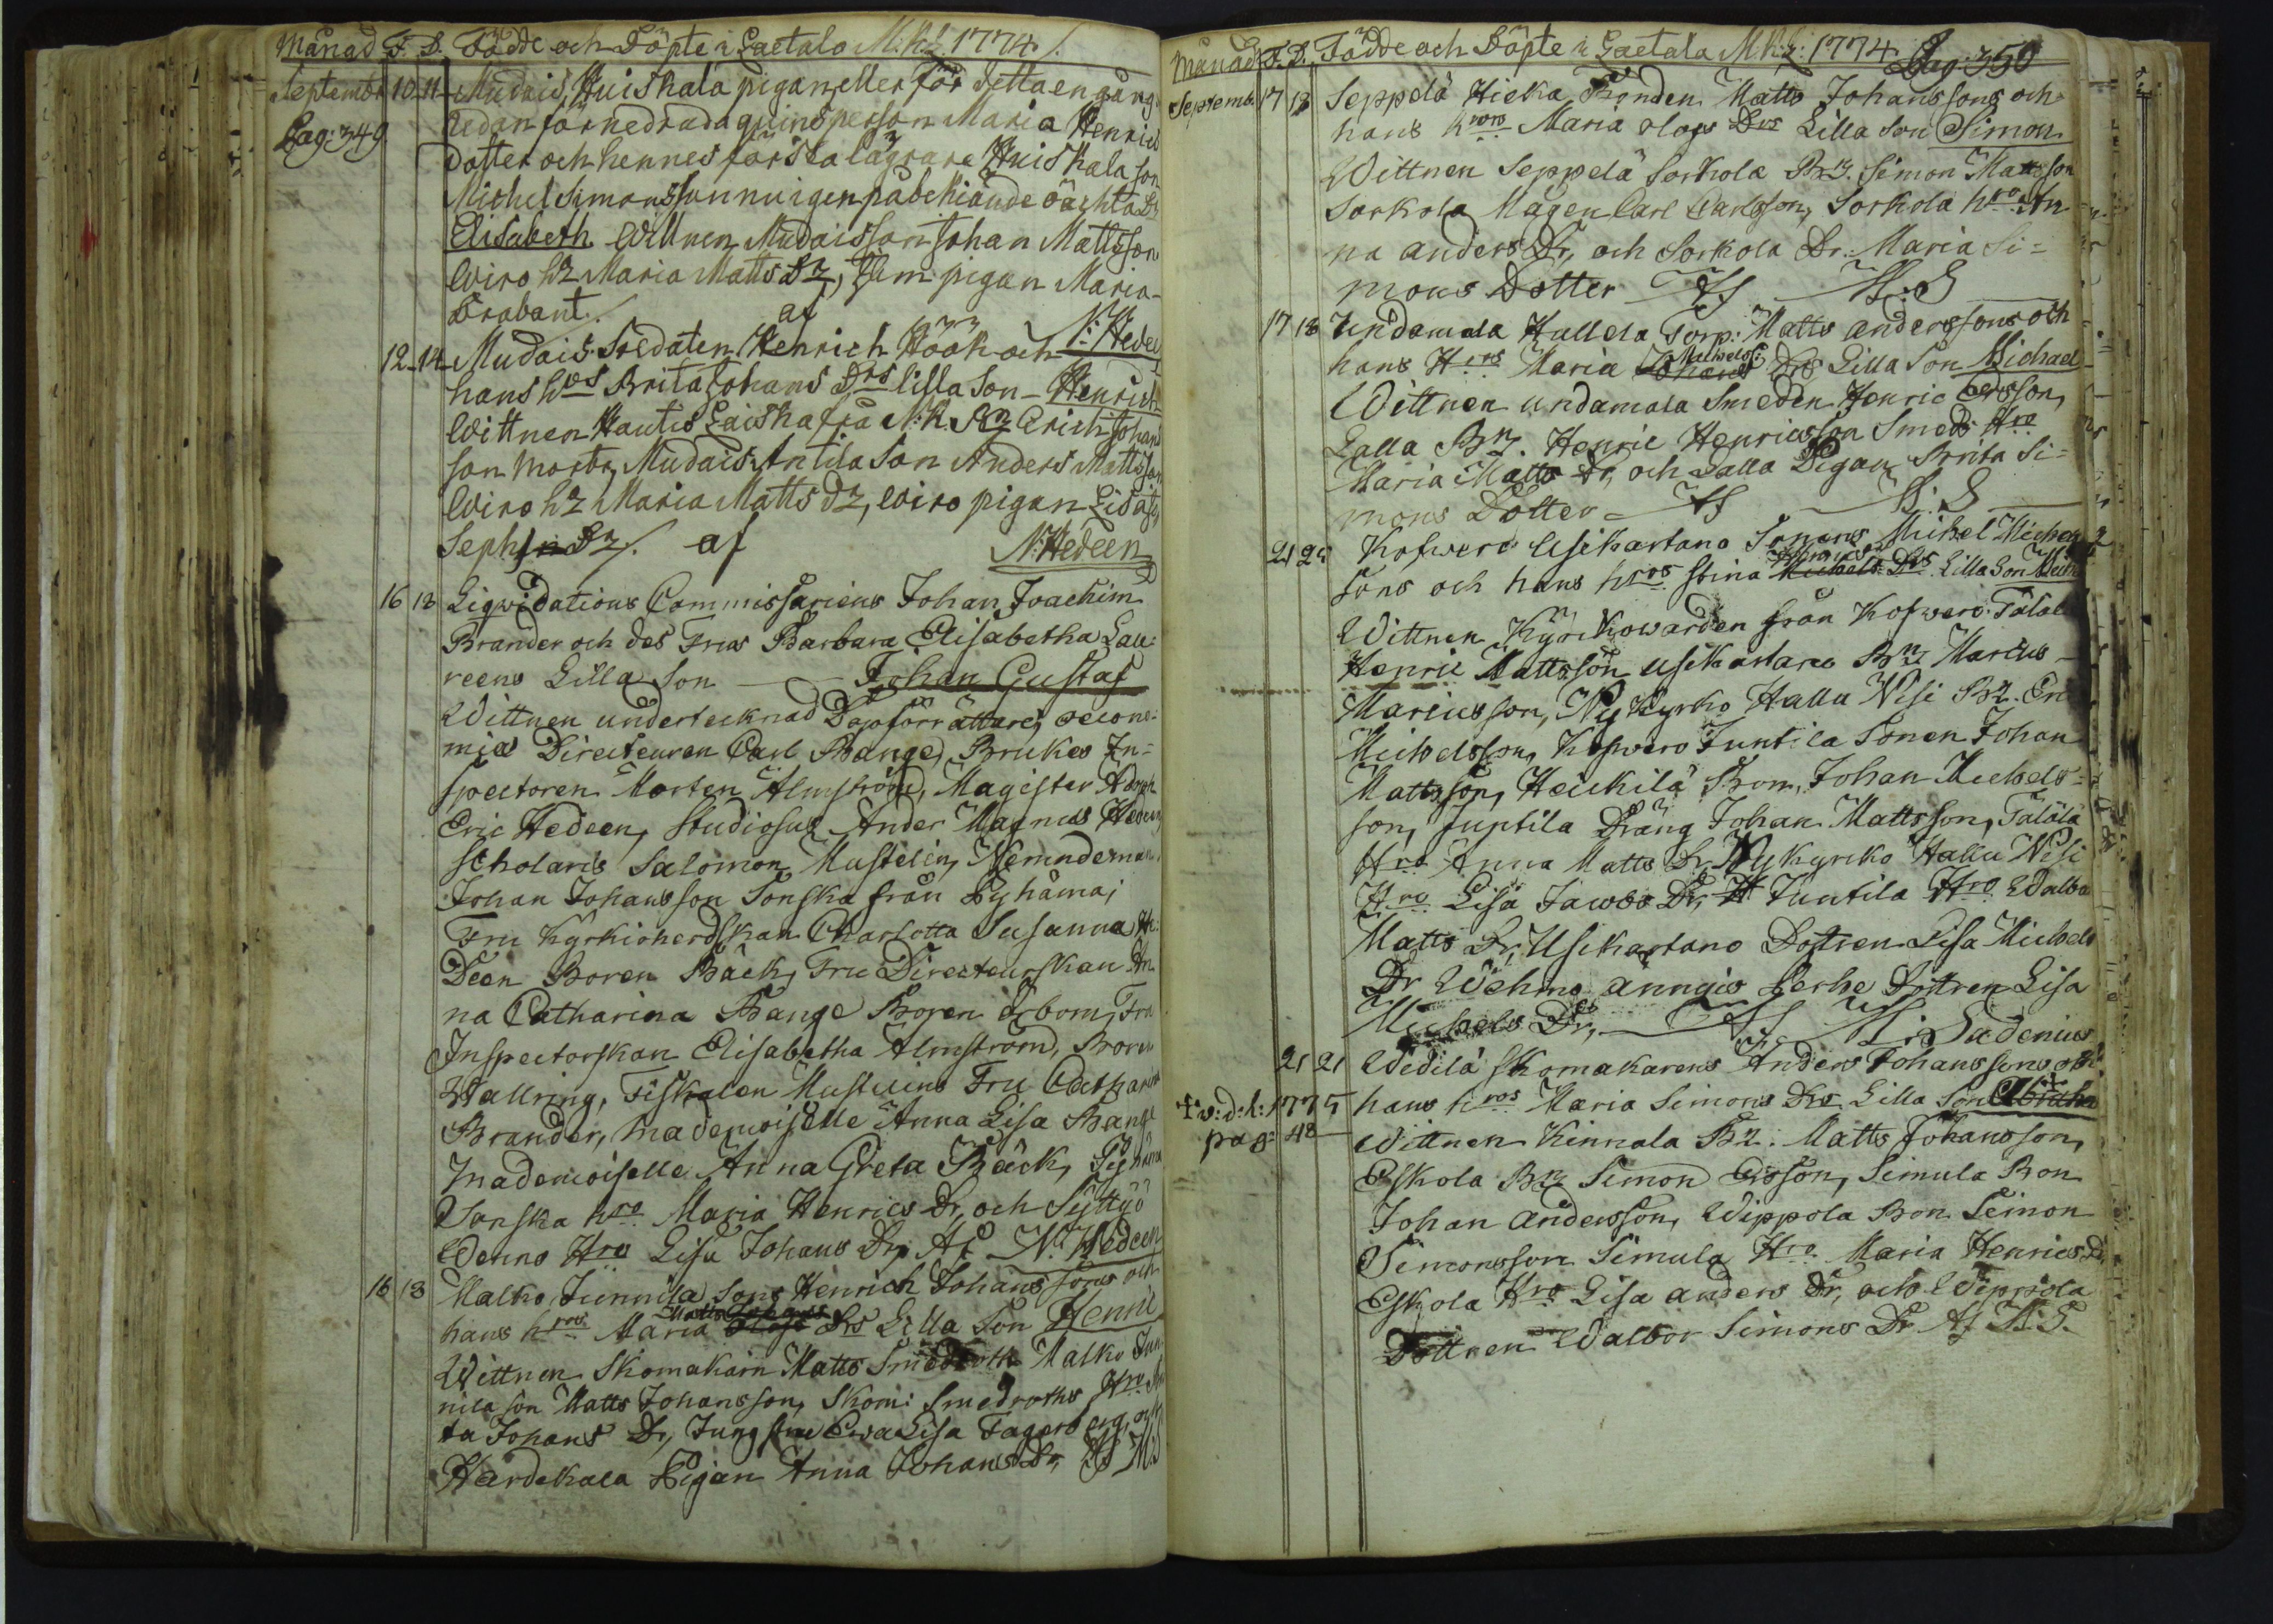 Månad F. D. Födde och Döpte i Laetala M:k: 1774
Septembr 10 11 Mudais, Huiskala pigan, eller för detta en gång
Pag: 349 redan förnedrada quinsperson Maria Henrics
dotter och hennes första lägrare Huiskala son
Michel Simonsson nu igen påbekiände oächta Dr
Elisabeth Wittnen Mudais son Johan Mattsson
Wiro hr Maria Matts Dr, pigan Maria
Brabant. af N: Hedeen
12 14 Mudais Soldaten Henrich Höök och
hans hrs Brita Johans Drs lilla Son Henrich
Wittnen Hautis Laiska frå N:k. Erich Johans
son Mudais Antila Son Anders Mattsson
Wiro hr Maria Matts dr, Wiro pigan Lisa
Sephs Dr. af N: Hedeen
16 18 Liqwidations Commissariens Johan Joachim
Brander och des Frus Barbara Elisabetha Lau-
reens Lilla Son Johan Gustaf
Wittnen undertecknad Dopförrättare, oecono-
miæ Directeuren Carl Bange, Brukes In-
spectoren Morten Almström, Magister Adolph
Eric Hedeen, Studiosus Ander Magnus Hedeen
Scholaris Salomon Mustelin, Nämndeman
Johan Johansson Sonska från Pyhämaj
Fru Kyrkioherdskan Charlotta Susanna He-
deen Boren Bäck, Fru Directeurskan An-
na Catharina Bange Boren Örbom, Fru
Inspectorskan Elisabetha Almström, Boren
Wallring, Fiskalen Mustelins Fru Catharina
Brander, Mademoiselle Anna Lisa Bange
Mademoiselle Anna Greta Bäck, Pyhäma
Sonska hro Maria Henrics Dr, och Syttyö
Wenno Hro Lisa Johans Dr, Af N: Hedeen
16 18 Malko Junnila Sons Henrich Johanssons och
hans hros Maria Matts Drs Lilla Son Henric
Wittnen Skomakarn Matts Smedroth Malko Jun-
nila son Matts Johansson, Skom: Smedroths Hro
ta Johans Dr, Jungfru Ewa Lisa Fagerberg, och
Hardikala Pigan Anna Johans Dr, Af M.S
Månad F. D. Födde och Döpte i Laetala M:k: 1774 Pag: 350
Septemb. 17 18 Seppelä Hieka Bonden Matts Johanssons och
hans hros Maria olofs Drs Lilla Son Simon
Wittnen Seppelä Sorkola Br. Simon Mattsson
Sorkola Mågen Carl Carlsson, Sorkola hro An-
na anders Dr, och Sorkola Dr. Maria Si-
mons Dotter Af M: S
17 18 Undamala Kullela Torp: Matts anderssons och
hans Hros Maria Michels: Drs Lilla Son Michael
Wittnen undamala Smeden Henric Ersson,
Lalla Br. Henric Henricsson Smeds Hro
Maria Matts Dr, och Lalla Pigan Brita Si-
mons Dotter Af M: S
21 25 Kofwero Usikartano Sonens Michel Michels
Sons och hans hros Stina Drs Lilla Son
Wittnen Kyrckowärden från Kofwero Tälälä
Henric Mattsson usikartano Br Marcus
Marcusson, Nykyrko Hallu Nisi Br. Eric
Michelsson, Kofwero Juntila Sonen Johan
Mattsson, Heickilä Bon, Johan Michels-
son, Juntila Dräng Johan Mattsson, Tälälä
Hro Anna Matts Dr, Nykyrcko Hallu Nisi
Hro Lisa Jacobs Dr, Juntila Hro Walbor
Matts Dr, Usikartano Dottren Lisa Michels
Dr Wehmo annyis Perhe Dottren Lisa
Michels Dr, Af M: Sudenius
21 21 Widilä Skomakarens Anders Johanssons och
v: d: l: 1775 hans hros Maria Simons Drs Lilla Son Abraha
pag: 48 Wittnen Kinnala Br. Matts Johansson,
Eskola Br Simon Ersson, Simula Bon
Johan andersson, Wippola Bon Simon
Simonsson Simula Hro Maria Henrics Dr,
Eskola Hro Lisa anders Dr, och Wippola
Dottren Walbor Simons Dr Af M: S.